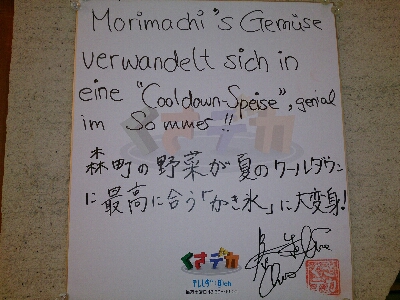 Morimachi's Gemüse
verwandelt sich in
eine "Cooldown-Speise", genial
im Sommer!!
くさデカ
森町の野菜が夏のクールダウン
に最高に合う「かき氷」に大変身!
くさデカ